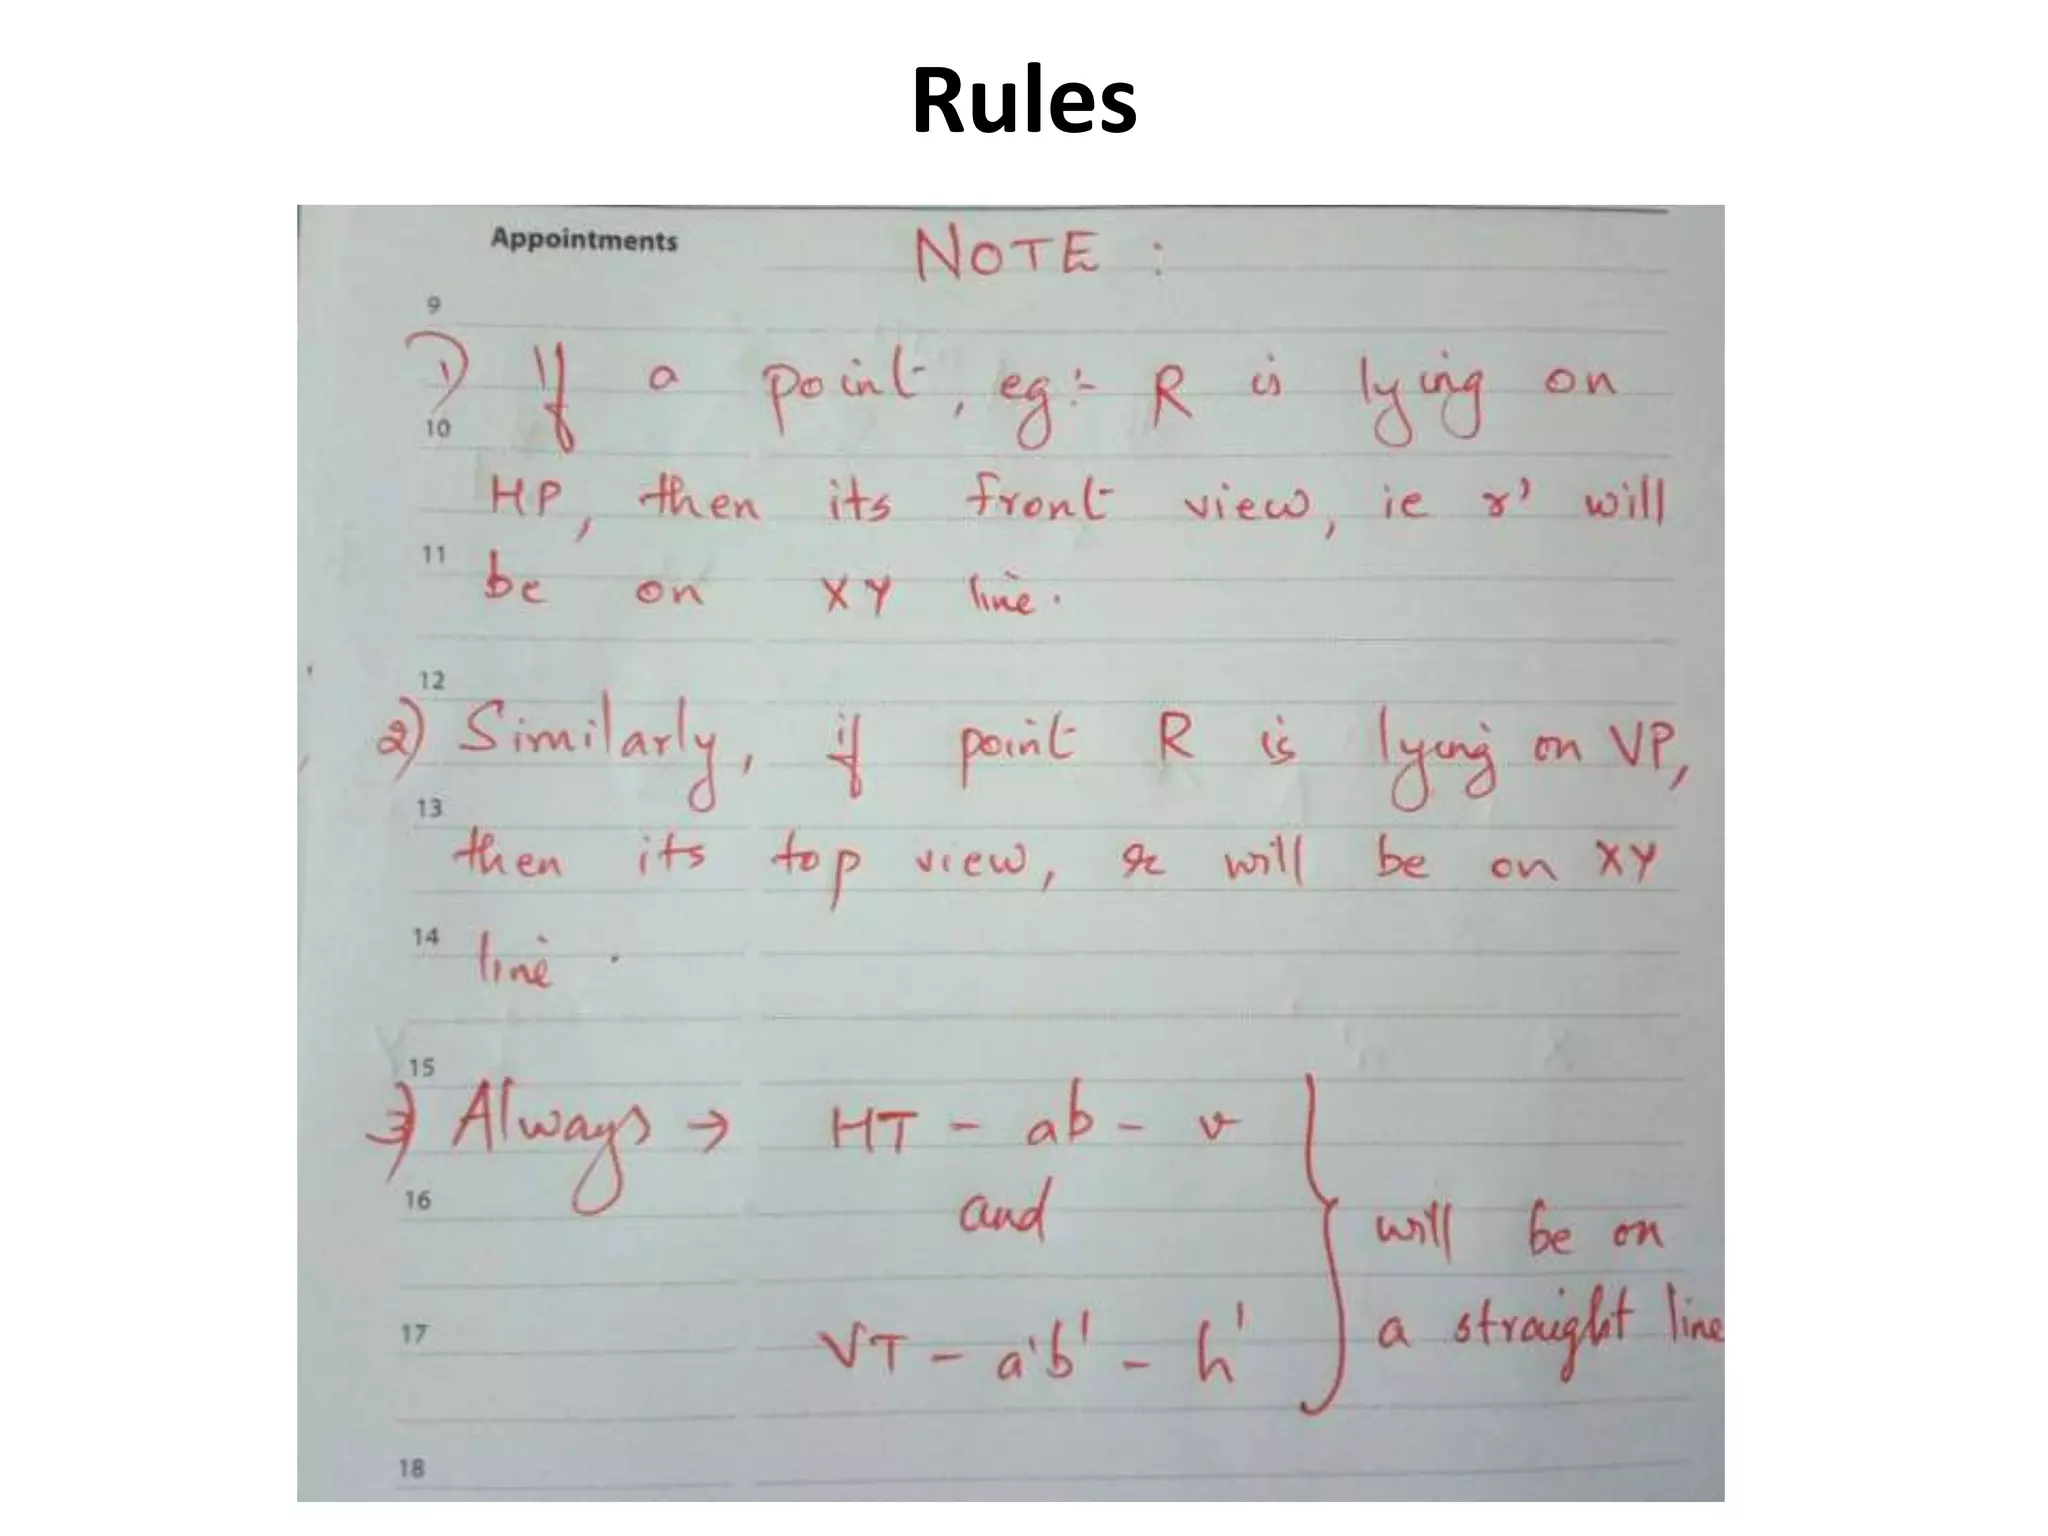 Rules
Appointments NOTE :
9
1) If a point, eg:- R is lying on
10
HP, then its front view, ie r' will
11
be on XY line.
12
2) Similarly, if point R is lying on VP,
13
then its top view, r will be on XY
14
line .
15
3) Always → HT - ab - v
16
and
will be on
17
a straight line
VT - a'b' - h'
18